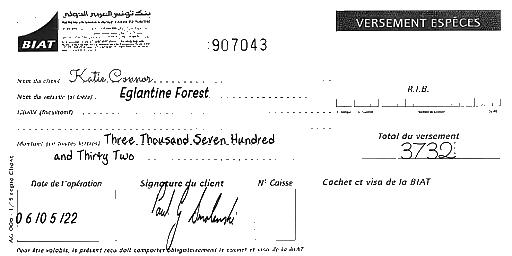 بنك تونس العربي الدولي
BIAT
VERSEMENT ESPÈCES
907043
Nom du client Katie Connor
R.I.B.
Nom du verseur (si tiers) Eglantine Forest
Libellé (facultatif)
Montant (en toutes lettres) Three Thousand Seven Hundred
and Thirty Two
Total du versement
3732
Date de l'opération
Signature du client
N° Caisse
Cachet et visa de la BIAT
06/05/22
Paul G
Pour être valable, le présent reçu doit comporter obligatoirement le cachet et visa de la BIAT